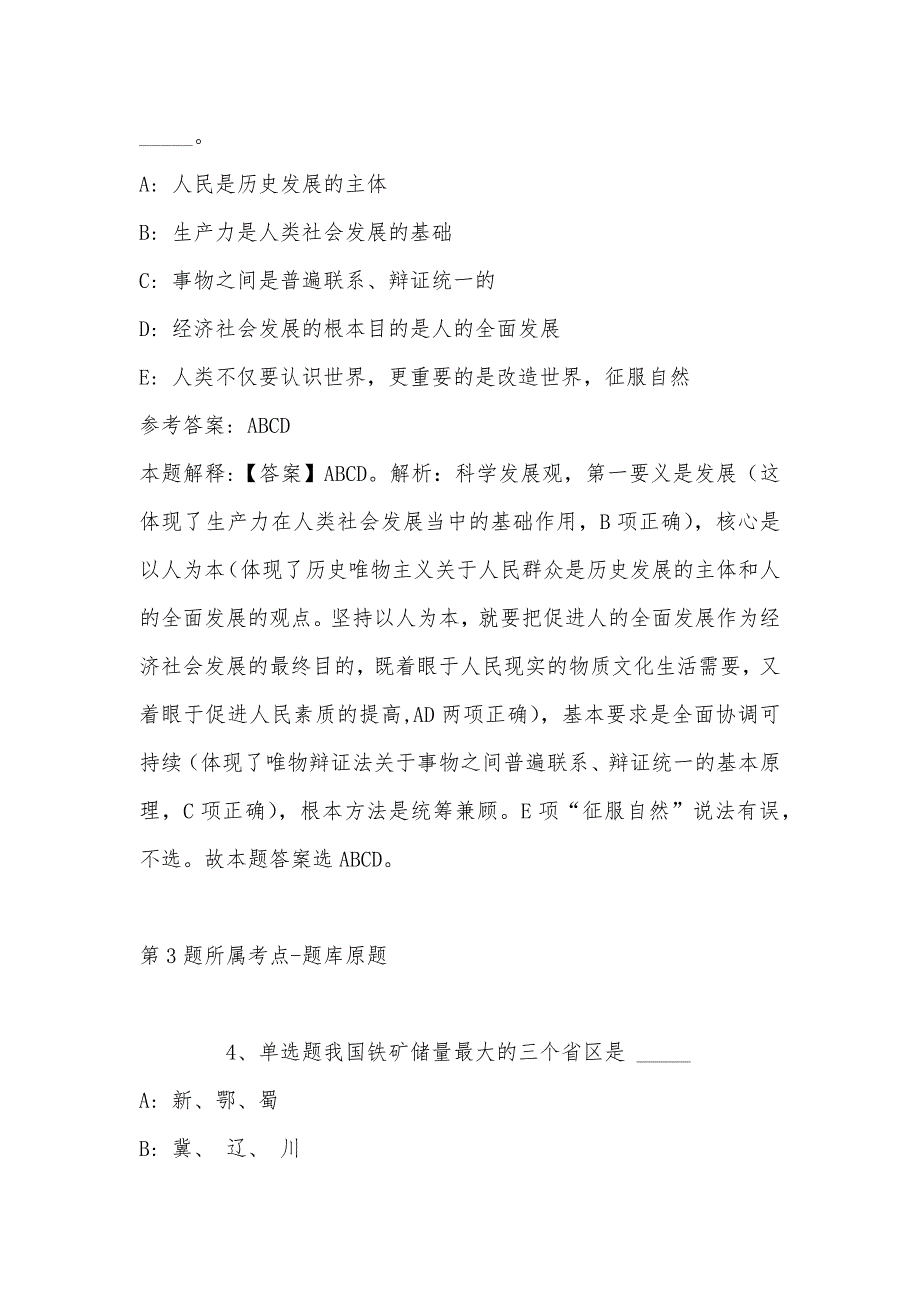 _____。
A: 人民是历史发展的主体
B: 生产力是人类社会发展的基础
C: 事物之间是普遍联系、辩证统一的
D: 经济社会发展的根本目的是人的全面发展
E: 人类不仅要认识世界，更重要的是改造世界，征服自然
参考答案: ABCD
本题解释:【答案】ABCD。解析：科学发展观，第一要义是发展（这
体现了生产力在人类社会发展当中的基础作用，B 项正确），核心是
以人为本（体现了历史唯物主义关于人民群众是历史发展的主体和人
的全面发展的观点。坚持以人为本，就要把促进人的全面发展作为经
济社会发展的最终目的，既着眼于人民现实的物质文化生活需要，又
着眼于促进人民素质的提高,AD 两项正确），基本要求是全面协调可
持续（体现了唯物辩证法关于事物之间普遍联系、辩证统一的基本原
理，C 项正确），根本方法是统筹兼顾。E 项“征服自然”说法有误，
不选。故本题答案选 ABCD。
第 3 题所属考点-题库原题
4、单选题我国铁矿储量最大的三个省区是 _____
A: 新、鄂、蜀
B: 冀、 辽、 川